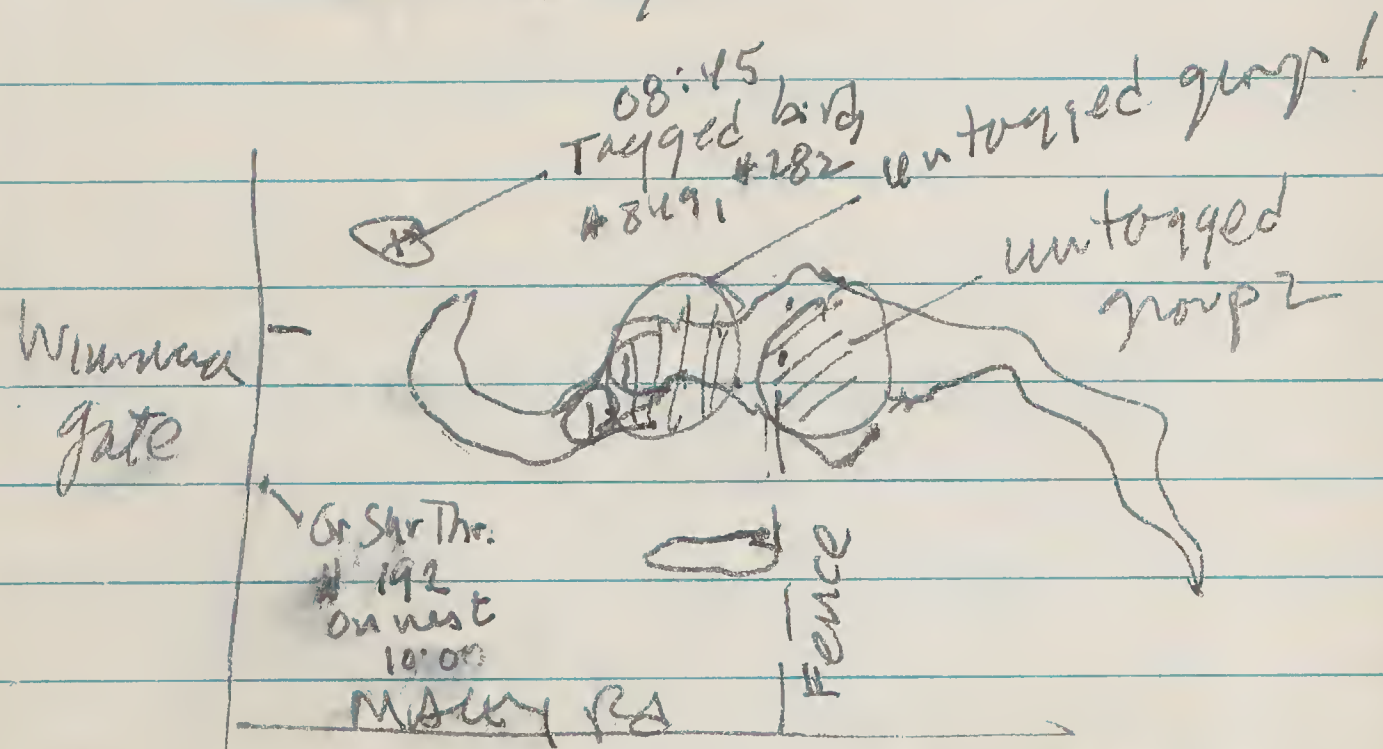 08:45
Tagged bird
#8491 #282
untagged group 1
untagged
group 2
gate
Gr Shr Thr.
# 192
on nest
10:00
Fence
RD